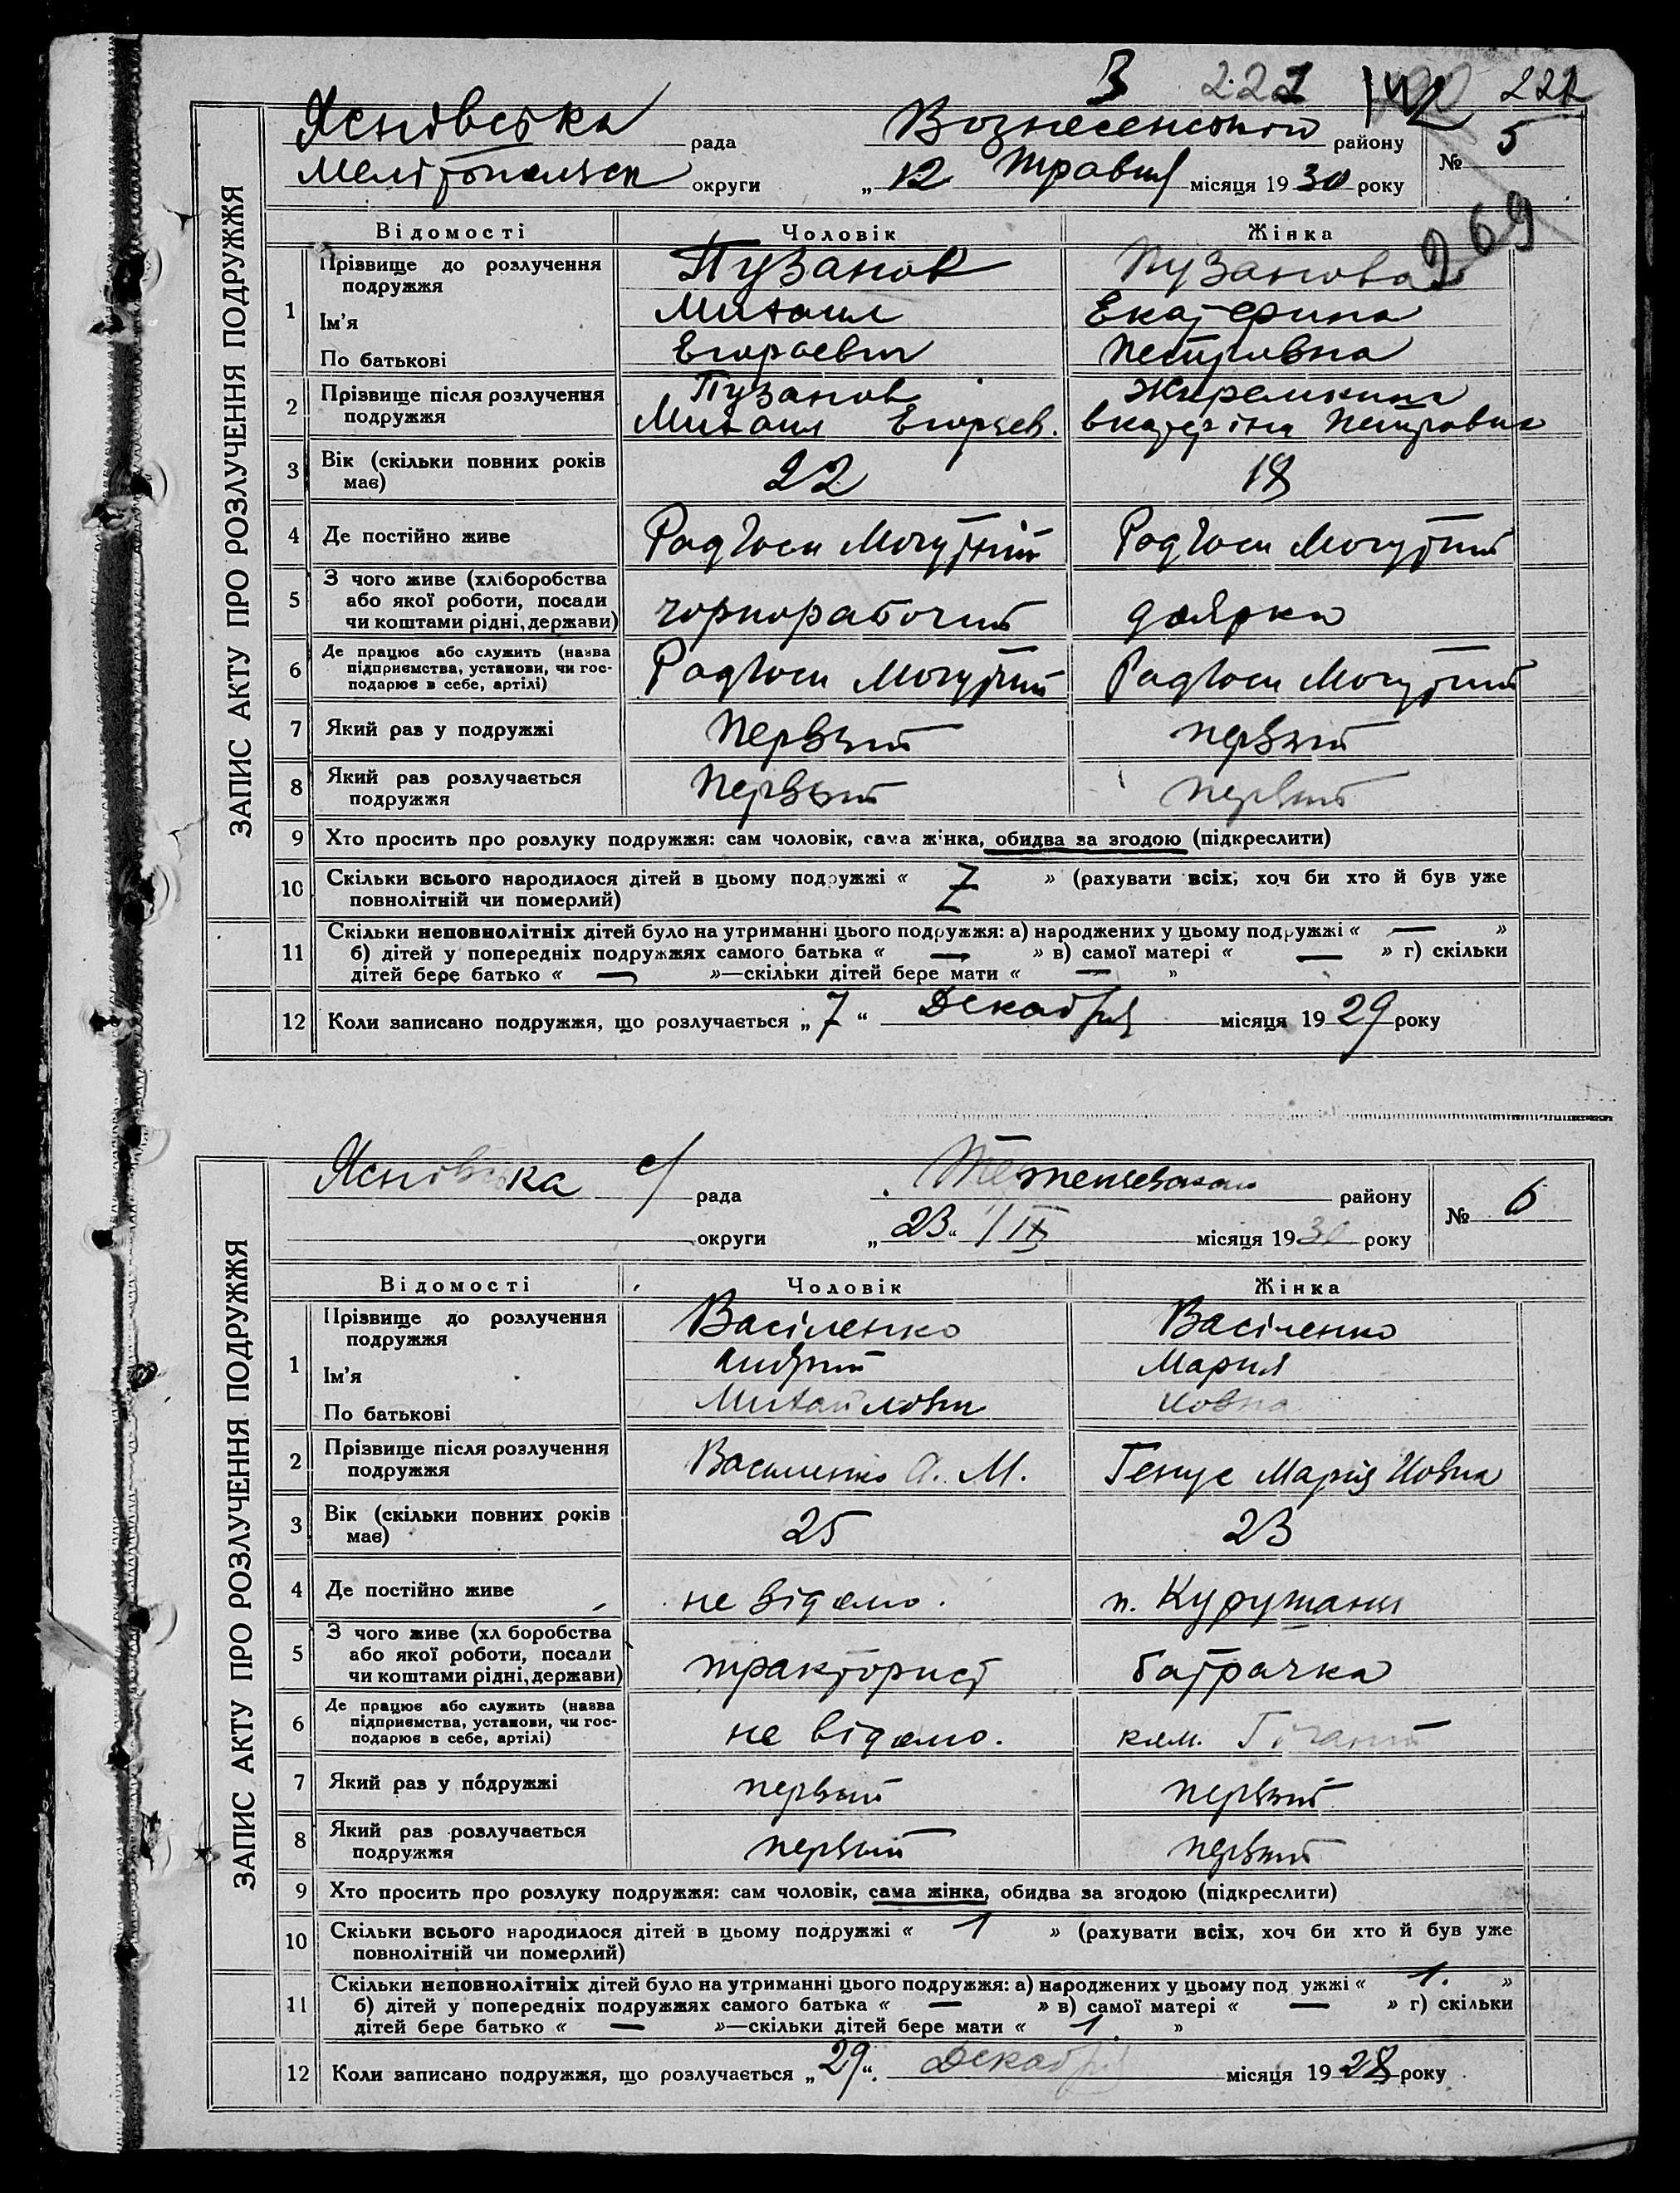 3 222 222
Ясновська рада Вознесенськой району
№ 5
Мелітопольск округи „12 Травня місяця 1930 року
269
ЗАПИС АКТУ ПРО РОЗЛУЧЕННЯ ПОДРУЖЖЯ
Відомості Чоловік Жінка
1
Прізвище до розлучення подружжя Пузанов Пузанова
Ім'я Михаил Екатерина
По батькові Егораевич Петровна
2 Прізвище після розлучення Пузанов
подружжя Михаил Егорьев. Екатеріна Петровна
3 Вік (скільки повних років має) 22 18
4 Де постійно живе Радгосп Могутній Радгосп Могутний
5 З чого живе (хліборобства
або якої роботи, посади чорнорабочий доярка
чи коштами рідні, держави)
6 Де працює або служить (назва
підприємства, установи, чи гос- Радгосп Могутний Радгосп Могутний
подарює в себе, артілі)
7 Який раз у подружжі Первый первый
8 Який раз розлучається Первый первый
подружжя
9 Хто просить про розлуку подружжя: сам чоловік, сама жінка, обидва за згодою (підкреслити)
10 Скільки всього народилося дітей в цьому подружжі « » (рахувати всіх, хоч би хто й був уже
повнолітній чи померлий)
11 Скільки неповнолітніх дітей було на утриманні цього подружжя: а) народжених у цьому подружжі « — »
б) дітей у попередніх подружжях самого батька « — » в) самої матері « — » г) скільки
дітей бере батько « — »—скільки дітей бере мати « — »
12 Коли записано подружжя, що розлучається „7“ Декабря місяця 1929 року
Ясновська с/ рада району
№ 6
округи „23“ /IX місяця 1930 року
ЗАПИС АКТУ ПРО РОЗЛУЧЕННЯ ПОДРУЖЖЯ
Відомості Чоловік Жінка
1
Прізвище до розлучення Васіленко Васіленко
подружжя
Ім'я Андрий Мария
По батькові Михайлович Иовна
2 Прізвище після розлучення Василенко А. М. Генус Марія Иовна
подружжя
3 Вік (скільки повних років 25 23
має)
4 Де постійно живе не відомо. п. Курушани
5 З чого живе (хл боробства
або якої роботи, посади тракторист батрачка
чи коштами рідні, держави)
6 Де працює або служить (назва
підприємства, установи, чи гос- не відомо.
подарює в себе, артілі)
7 Який раз у подружжі первый первый
8 Який раз розлучається первый первый
подружжя
9 Хто просить про розлуку подружжя: сам чоловік, сама жінка, обидва за згодою (підкреслити)
10 Скільки всього народилося дітей в цьому подружжі « 1 » (рахувати всіх, хоч би хто й був уже
повнолітній чи померлий)
11 Скільки неповнолітніх дітей було на утриманні цього подружжя: а) народжених у цьому под ужжі « 1. »
б) дітей у попередніх подружжях самого батька « — » в) самої матері « — » г) скільки
дітей бере батько « — »—скільки дітей бере мати « 1. »
12 Коли записано подружжя, що розлучається „29“. Декабря місяця 1928 року